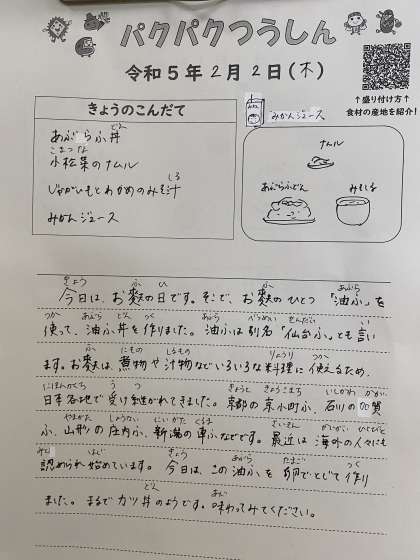 パクパクつうしん
令和5年2月2日(木)
↑盛り付け方↑
食材の産地を紹介!
きょうのこんだて
あぶらふ丼
小松菜のナムル
じゃがいもとわかめのみそ汁
みかんジュース
みかんジュース
ナムル
あぶらふどん
みそしる
今日は、お麩の日です。そこで、お麩のひとつ「油ふ」を
使って、油ふ丼を作りました。油ふは別名「仙台ふ」とも言い
ます。お麩は、煮物や汁物などいろいろな料理に使えるため、
日本各地で受け継がれてきました。京都の京小町ふ、石川の加賀
ふ、山形の庄内ふ、新潟の車ふなどです。最近は海外の人々にも
認められ始めています。今日は、この油ふを卵でとじて作り
ました。まるでカツ丼のようです。味わってみてください。